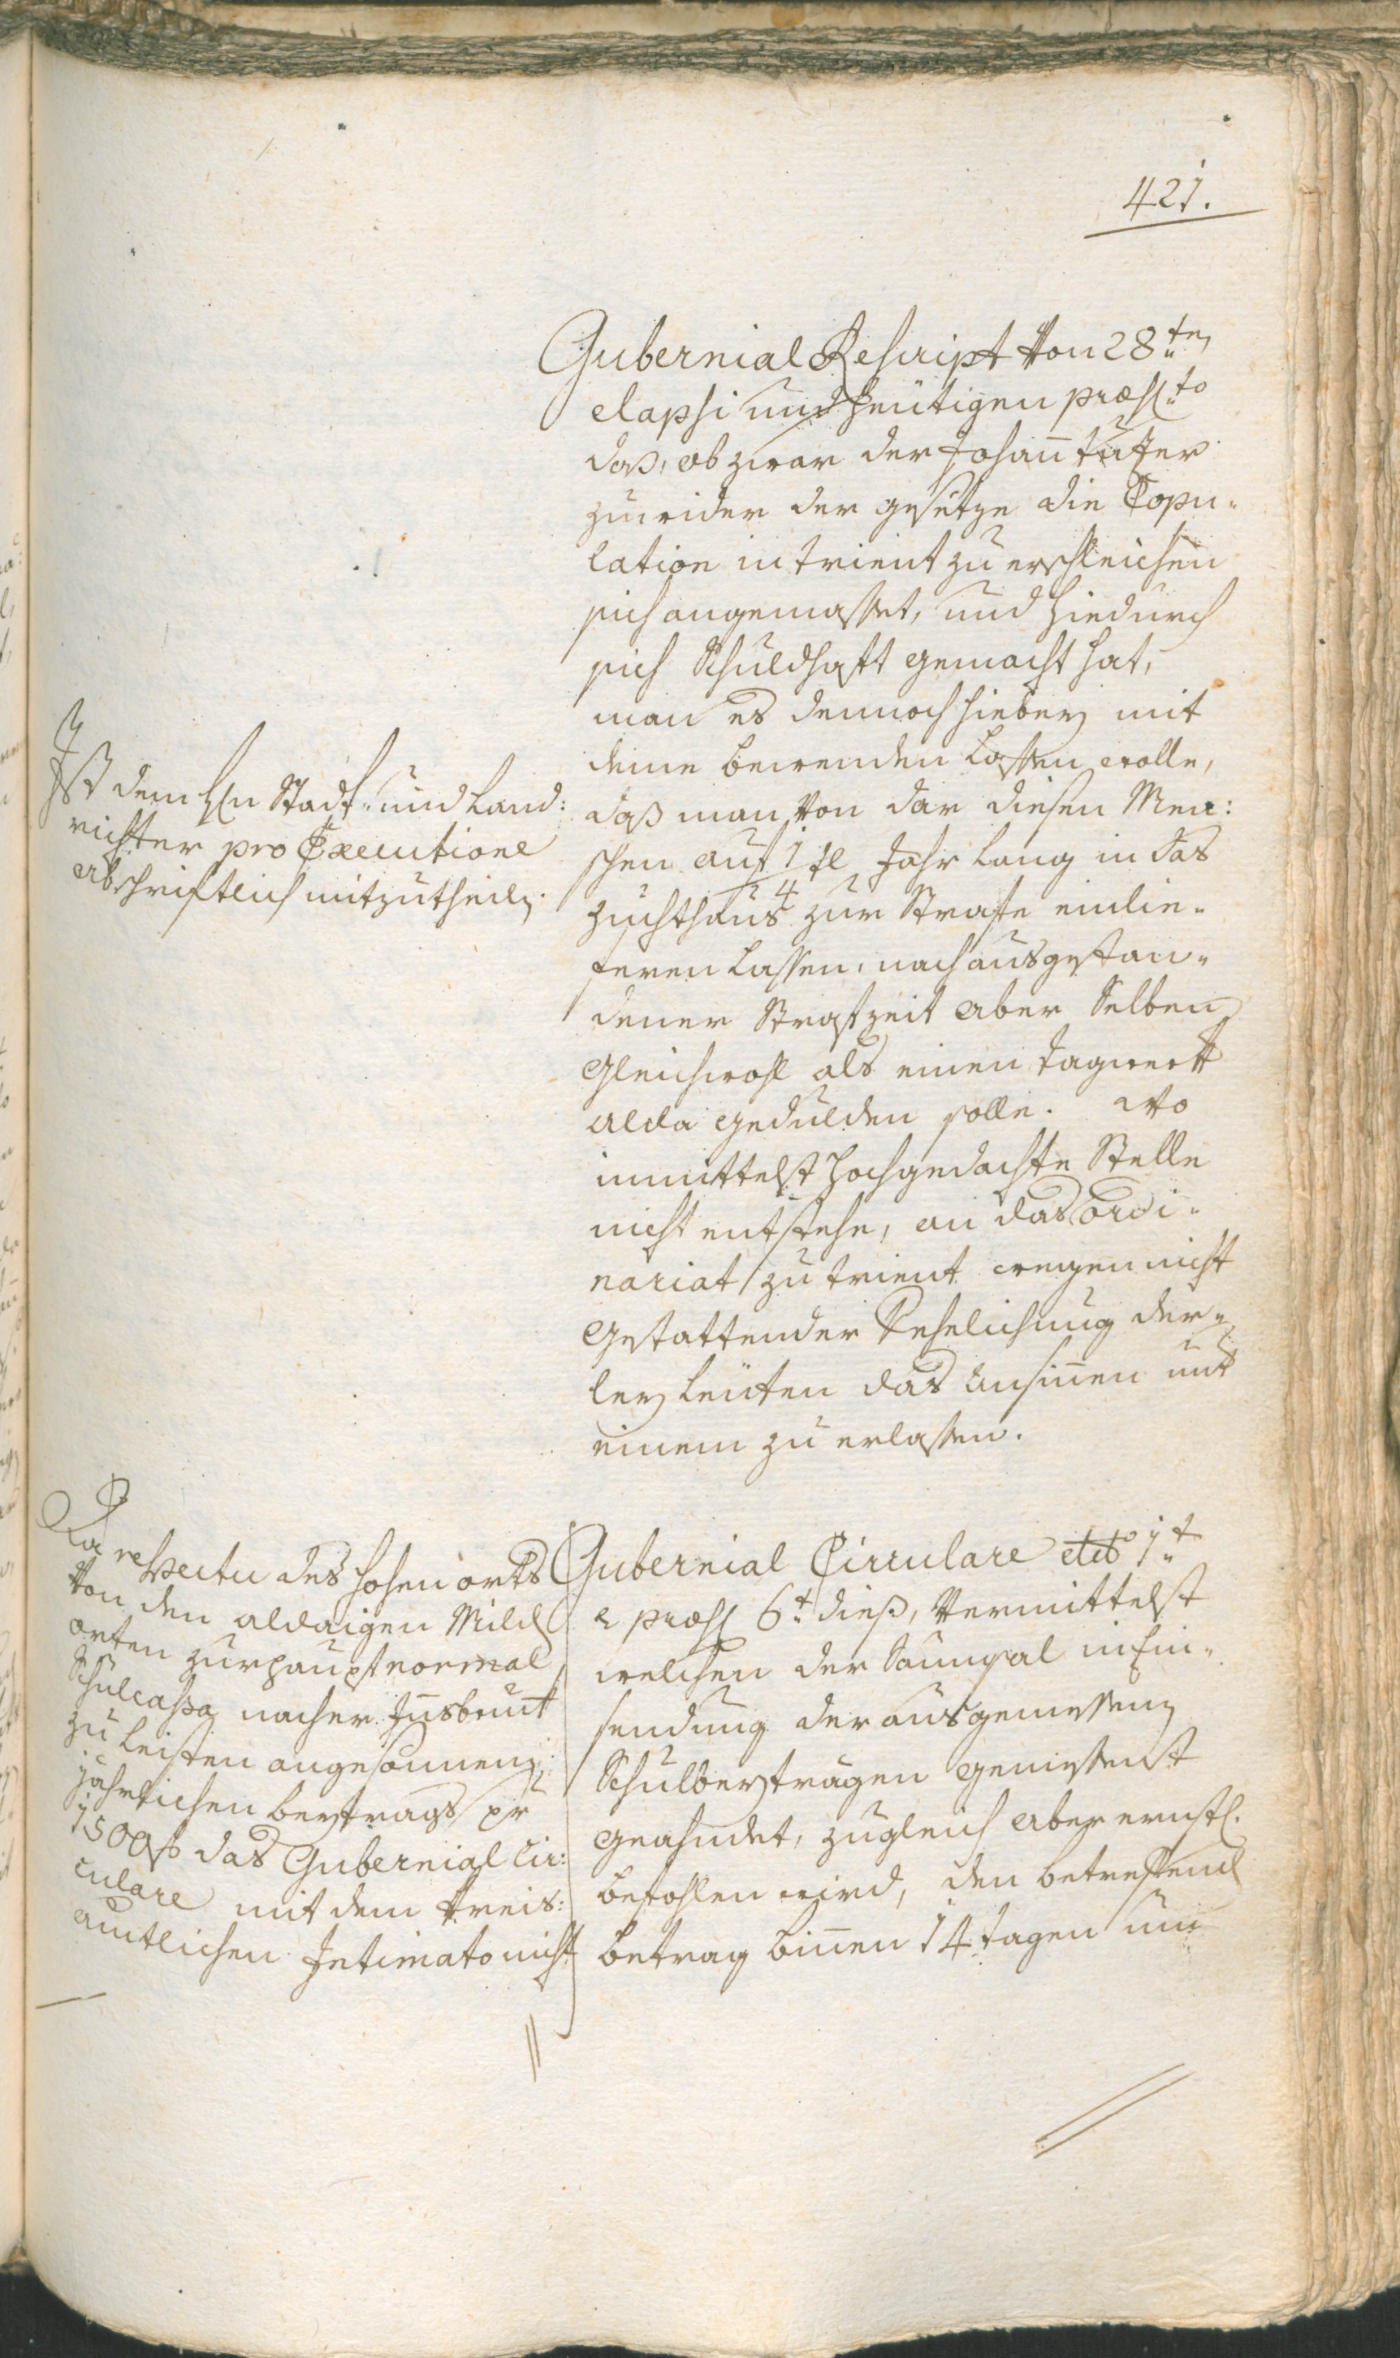 421.
Gubernial Rescript von 28ten
elapsi und heutigen præs:to
daß, ob zwar der Johann
zuwider der gesetze die Copu-
lation in Trient zu erschleichen
sich angemasset, und hiedurch
sich Schuldhaft gemacht hat,
man es dennoch hiebey mit
deme bewenden lassen wolle,
daß man von dar diesen Men:
schen auf 1/4tl Jahr lang in das
Zuchthaus zur Strafe einlie-
feren lassen, nach ausgestan-
dener Strafzeit aber Selben
gleichwohl als einen Tagwerk
alda gedulden solle. Wo
inmittelst hochgedachte Stelle
nicht entstehe, an das Ordi-
nariat zu Trient wegen nicht
gestattender Verehelichung der-
ley Leüten das Ansinnen unt
einem zu erlassen.
Ist dem Hrn Stadt- und Land:
richter pro Executione
abschriftlich mitzutheiln.
Gubernial Circulare dto 1t
& præs: 6t dieß, vermittelst
welchen der Saumsal in Ein-
sendung der ausgemessenen
Schulbeyträgen gemessenst
geahndet, zugleich aber ernstl.
befohlen wird, den betreffend
betrag binnen 14 tagen um
Da respectu des hohen orts
von den aldaigen Mild
orten zur hauptnormal
Schulcassa nacher Insbrukt
zu leisten angesonnenen
jährlichen beytrags pr
1500f das Gubernial Cir:
culare mit dem Kreis:
amtlichen Intimato nicht